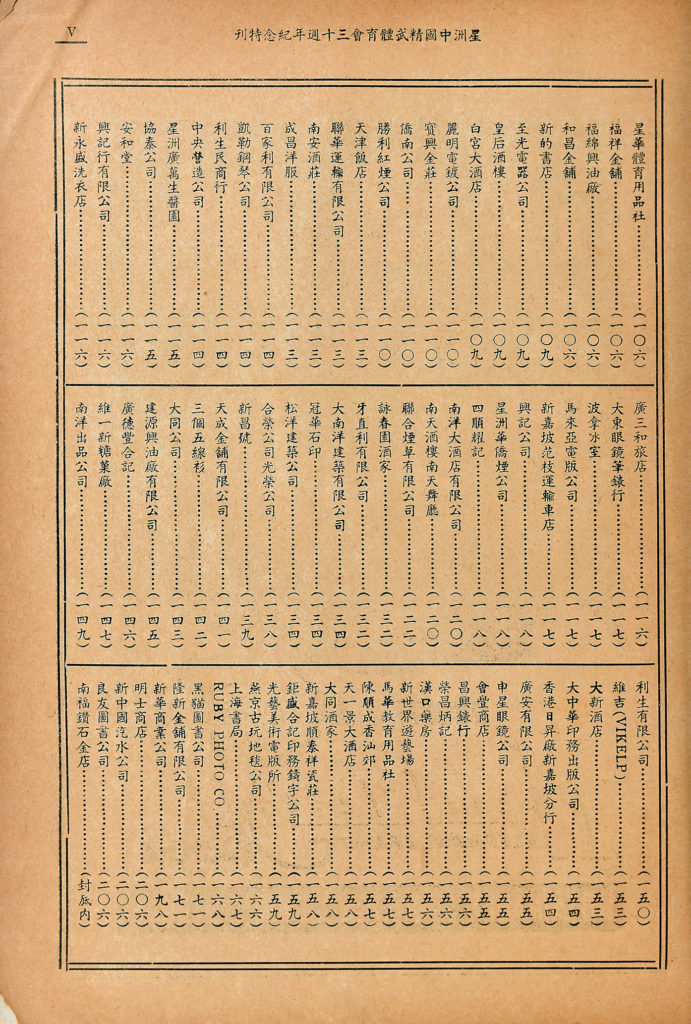 V
星洲中國精武體育會三十週年紀念特刊
星華體育用品社……(一〇六)
福祥金舖……(一〇六)
福綿興油廠……(一〇六)
和昌金舖……(一〇六)
新的書店……(一〇九)
至光電器公司……(一〇九)
皇后酒樓……(一〇九)
白宮大酒店……(一〇九)
麗明電鍍公司……(一一〇)
寶興金莊……(一一〇)
僑南公司……(一一〇)
勝利紅煙公司……(一一〇)
天津飯店……(一一三)
聯華運輸有限公司……(一一三)
南安酒莊……(一一三)
成昌洋服……(一一三)
百家利有限公司……(一一四)
凱勒鋼琴公司……(一一四)
利生民商行……(一一四)
中央營造公司……(一一四)
星洲廣萬生醫園……(一一五)
協泰公司……(一一五)
安和堂……(一一六)
興記行有限公司……(一一六)
新永盛洗衣店……(一一六)
廣三和旅店……(一一六)
大東眼鏡筆錶行……(一一七)
波拿冰室……(一一七)
馬來亞電版公司……(一一七)
新嘉坡范枝運輸車店……(一一七)
興記公司……(一一八)
星洲華僑煙公司……(一一八)
四順耀記……(一一八)
南洋大酒店有限公司……(一二〇)
南天酒樓南天舞廳……(一二〇)
聯合煙草有限公司……(一二二)
詠春園酒家……(一三二)
牙直利有限公司……(一三二)
大南洋建築有限公司……(一三四)
冠華石印……(一三四)
松洋建築公司……(一三四)
合榮公司光榮公司……(一三八)
新昌號……(一三九)
天成金舖有限公司……(一四一)
三個五線衫……(一四二)
大同公司……(一四三)
建源興油廠有限公司……(一四五)
廣德豐合記……(一四六)
維一新糖菓廠……(一四七)
南洋出品公司……(一四九)
利生有限公司……(一五〇)
維吉(VIKELP)……(一五三)
大新酒店……(一五三)
大中華印務出版公司……(一五四)
香港日昇廠新嘉坡分行……(一五四)
廣安有限公司……(一五五)
申星眼鏡公司……(一五五)
會豐商店……(一五五)
昌興錶行……(一五五)
榮昌炳記……(一五六)
漢口藥房……(一五六)
新世界遊藝場……(一五六)
馬華教育用品社……(一五七)
陳順成香汕郊……(一五七)
天一景大酒店……(一五七)
大同酒家……(一五八)
新嘉坡順泰祥瓷莊……(一五八)
鉅盛合記印務鑄字公司……(一五九)
光藝美術電版所……(一五九)
燕京古玩地毯公司……(一六六)
上海書局……(一六七)
RUBY PHOTO CO.……(一六八)
黑貓圖書公司……(一七一)
隆新金舖有限公司……(一七一)
新華商業公司……(一九八)
明士商店……(二〇六)
新中國汽水公司……(二〇六)
良友圖書公司……(二〇六)
南福鑽石金店……(封底內)